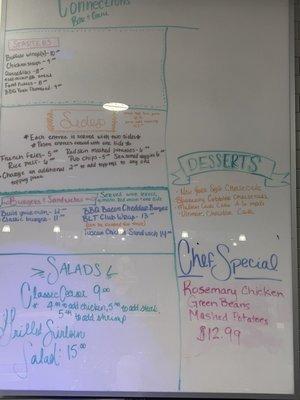 Connections
Bar + Grill
STARTERS
Buffalo wings(6) - 10.00
Chicken strips - 9.00
Quesadillas - 8.00
Fried Pickles - 8.00
BBQ Pork Flatbread - 9.00
Sides
* Each entree is served with two sides *
* Pasta entrees served with one side *
French Fries - 4.00
Rice Pilaf - 4.00
Redskin mashed potatoes - 4.00
Pub Chips - 5.00 Seasonal veggies 6.00
* Charge an additional 2.00 to add toppings to any side
Burgers + Sandwiches
Build your own - 12.00
Classic burger - 11.00
BBQ Bacon Cheddar Burger
BLT Club Wrap - 13.00
Tuscan Chicken Sandwich 14.00
SALADS
Classic Caesar 9.00
* 4.00 to add chicken, 5.00 to add steak,
5.00 to add shrimp
Grilled Sirloin
Salad: 15.00
DESSERTS
- New York Style Cheesecake
- Blueberry Cobbler Cheesecake
- Molten Lava Cake A la mode
- Chocolate Cake
Chef Special
Rosemary Chicken
Green Beans
Mashed Potatoes
$12.99